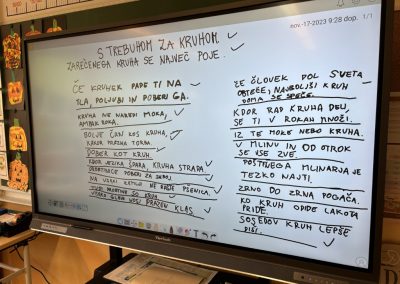 nov.-17-2023 9:28 dop. 1/1
S TREBUHOM ZA KRUHOM.
ZAREČENEGA KRUHA SE NAJVEČ POJE.
ČE KRUHEK PADE TI NA
TLA, POLJUBI IN POBERI GA.
KRUHA NE NAREDI MOKA,
AMPAK ROKA.
BOLJE ČRN KOS KRUHA,
KAKOR PRAZNA TORBA.
DOBER KOT KRUH.
KDOR JEZIKA ŠPARA, KRUHA STRADA.
DROBTINICE POBERI ZA SEBOJ
NA VSAKI ZEMLJI NE RAJE PŠENICA.
KRUH.
VISOKO GLAVO NOSI PRAZEN KLAS.
ČE ČLOVEK POL SVETA
OBTEČE, NAJBOLJŠI KRUH
DOMA SE SPEČE.
KDOR RAD KRUHA DELI,
SE TI V ROKAH MNOŽI.
IZ TE MOKE NEBO KRUHA.
V MLINU IN OD OTROK
SE VSE ZVE.
POŠTENEGA MLINARJA JE
TEŽKO NAJTI.
ZRNO DO ZRNA POGAČA.
KO KRUH ODIDE, LAKOTA
PRIDE.
SOSEDOV KRUH LEPŠE
DIŠI.
ViewSonic